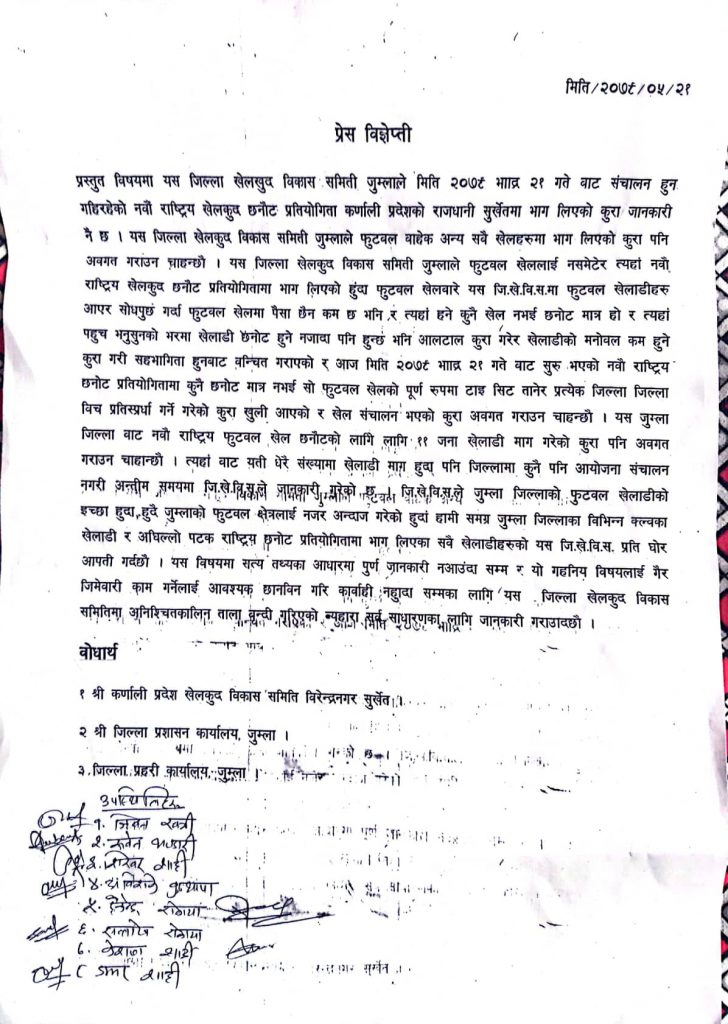 मिति/२०७९/०५/२१
प्रेस विज्ञेप्ती
प्रस्तुत विषयमा यस जिल्ला खेलखुद विकास समिती जुम्लाले मिति २०७९ भााद्र २१ गते वाट संचालन हुन
गहिरहेको नवौ राष्ट्रिय खेलकुद छनौट प्रतियोगिता कर्णाली प्रदेशको राजधानी सुर्खेतमा भाग लिएको कुरा जानकारी
नै छ । यस जिल्ला खेलकुद विकास समिती जुम्लाले फुटवल वाहेक अन्य सवै खेलहरुमा भाग लिएको कुरा पनि
अवगत गराउन चाहन्छौ । यस जिल्ला खेलकुद विकास समिती जुम्लाले फुटवल खेललाई नसमेटेर त्यहां नवौ
राष्ट्रिय खेलकुद छनौट प्रतियोगितामा भाग लिएको हुंदा फुटवल खेलवारे यस जि.खे.वि.स.मा फुटवल खेलाडीहरु
आएर सोधपुछ गर्दा फुटवल खेलमा पैसा छैन कम छ भनि र त्यहां हने कुनै खेल नभई छनोट मात्र हो र त्यहां
पहुच भनुसुनको भरमा खेलाडी छनोट हुने नजादा पनि हुन्छ भनि आलटाल कुरा गरेर खेलाडीको मनोवल कम हुने
कुरा गरी सहभागिता हुनबाट वन्चित गराएको र आज मिति २०७९ भााद्र २१ गते वाट सुरु भएको नवौ राष्ट्रिय
छनोट प्रतियोगितामा कुनै छनोट मात्र नभई सो फुटवल खेलको पूर्ण रुपमा टाइ सिट तानेर प्रत्येक जिल्ला जिल्ला
विच प्रतिस्प्रर्धा गर्ने गरेको कुरा खुली आएको र खेल संचालन भएको कुरा अवगत गराउन चाहन्छौ । यस जुम्ला
जिल्ला वाट नवौ राष्ट्रिय फुटवल खेल छनौटको लागि लागि ११ जना खेलाडी माग गरेको कुरा पनि अवगत
गराउन चाहान्छौ । त्यहां वाट यती धेरै संख्यामा खेलाडी माग हुदा पनि जिल्लामा कुनै पनि आयोजना संचालन
नगरी अन्तीम समयमा जि.खे.वि.स.ले जानकारी गरेको छ । जि.खे.वि.स.ले जुम्ला जिल्लाको फुटवल खेलाडीको
इच्छा हुदा हुदै जुम्लाको फुटवल क्षेत्रलाई नजर अन्दाज गरेको हुदां हामी समग्र जुम्ला जिल्लाका विभिन्न क्ल्वका
खेलाडी र अघिल्लो पटक राष्ट्रिय छनोट प्रतियोगितामा भाग लिएका सवै खेलाडीहरुको यस जि.खे.वि.स. प्रति घोर
आपती गर्दछौ । यस विषयमा सत्य तथ्यका आधारमा पुर्ण जानकारी नआउंदा सम्म र यो गहनिय विषयलाई गैर
जिमेवारी काम गर्नेलाई आवश्यक छानविन गरि कार्वाही नहुादा सम्मका लागि यस जिल्ला खेलकुद विकास
समितिमा अनिश्चितकालिन ताला वन्दी गरिएको व्यहारा सर्व साधारणका लागि जानकारी गराउदछौ ।
वोधार्थ
१ श्री कर्णाली प्रदेश खेलकुद विकास समिति विरेन्द्रनगर सुर्खेत ।
२ श्री जिल्ला प्रशासन कार्यालय, जुम्ला ।
३ जिल्ला प्रहरी कार्यालय जुम्ला ।
१.
२.
३. शाही
४.
५.
६. सन्तोष
७. शाही
८ शाही
सुर्खेत ।